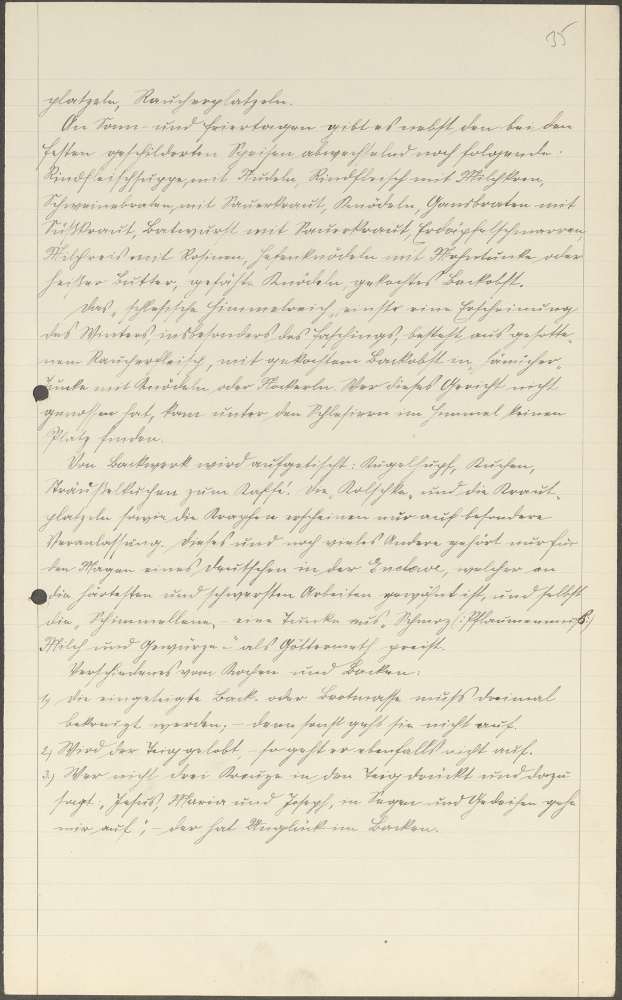 35
platzeln, Raucherplatzeln.
An Sonn- und Feiertagen gibt es nebst den bei den
Festen geschilderten Speisen abwechselnd noch folgende:
Rindfleischsuppe, mit Nudeln, Rindfleisch mit Milchkren,
Schweinebraten, mit Sauerkraut, Knödeln, Gansbraten mit
Süßkraut, Bratwurst mit Sauerkraut, Erdäpfelschmarren,
Milchreis mit Rosinen, Hefenknödeln mit Mohntunke oder
heißer Butter, gefüllte Knödeln, gekochtes Backobst.
Das „schlesische Himmelreich„ einst eine Erscheinung
des Winters, insbesonders des Faschings, besteht aus gesotte-
nem Raucherfleisch, mit gekochtem Backobst in „sämicher„
Tunke mit Knödeln oder Nockerln. Wer dieses Gericht nicht
genossen hat, kann unter den Schlesiern im Himmel keinen
Platz finden.
Von Backwerk wird aufgetischt: Kugelhupf, Kuchen,
Sträußelkuchen zum Kaffé. Die „Kolschke„ und die Kraut-
platzeln sowie die Krapfen erscheinen nur auf besondere
Veranlassung. Dieses und noch vieles Andere gehört nur für
den Magen eines Deutschen in der Enclave, welcher an
die härtesten und schwersten Arbeiten gewöhnt ist, und selbst
die „Schimmellene„ – eine Tunke aus „Schmoz (: Pflaumenmus :)
Milch und Gewürze –" als Göttermeth preist.
Verschiedenes vom Kochen und Backen:
1) Die eingeteigte Back- oder Brotmasse muß dreimal
bekreuzt werden, – denn sonst geht sie nicht auf.
2) Wird der Teig gelobt, – so geht er ebenfalls nicht auf.
3) Wer nicht drei Kreuze in den Teig drückt und dazu
sagt: „Jesus, Maria und Joseph, in Segen und Gedeihen gehe
mir auf", – der hat Unglück im Backen.